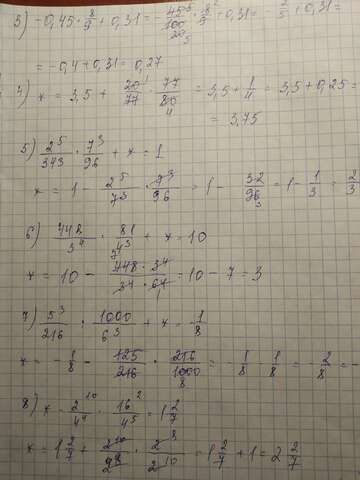 3) -0,45 · 8/9 + 0,31 = - 45/100 · 8/9 + 0,31 = - 2/5 + 0,31 =
= -0,4 + 0,31 = 0,27
4) x = 3,5 + 20/77 · 77/80 = 3,5 + 1/4 = 3,5 + 0,25 =
= 3,75
5) 2^5/343 · 7^3/96 + x = 1
x = 1 - 2^5/7^3 · 7^3/96 = 1 - 32/96 = 1 - 1/3 = 2/3
6) 448/3^4 · 81/4^3 + x = 10
x = 10 - 448 · 3^4/3^4 · 64 = 10 - 7 = 3
7) 5^3/216 : 1000/6^3 + x = - 1/8
x = - 1/8 - 125/216 · 216/1000 = - 1/8 - 1/8 = - 2/8 = -
8) x - 2^10/4^4 · 16^2/4^5 = 1 2/7
x = 1 2/7 + 2^10/2^8 · 2^8/2^10 = 1 2/7 + 1 = 2 2/7